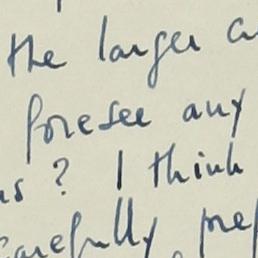 the larger
foresee any
? I think
carefully